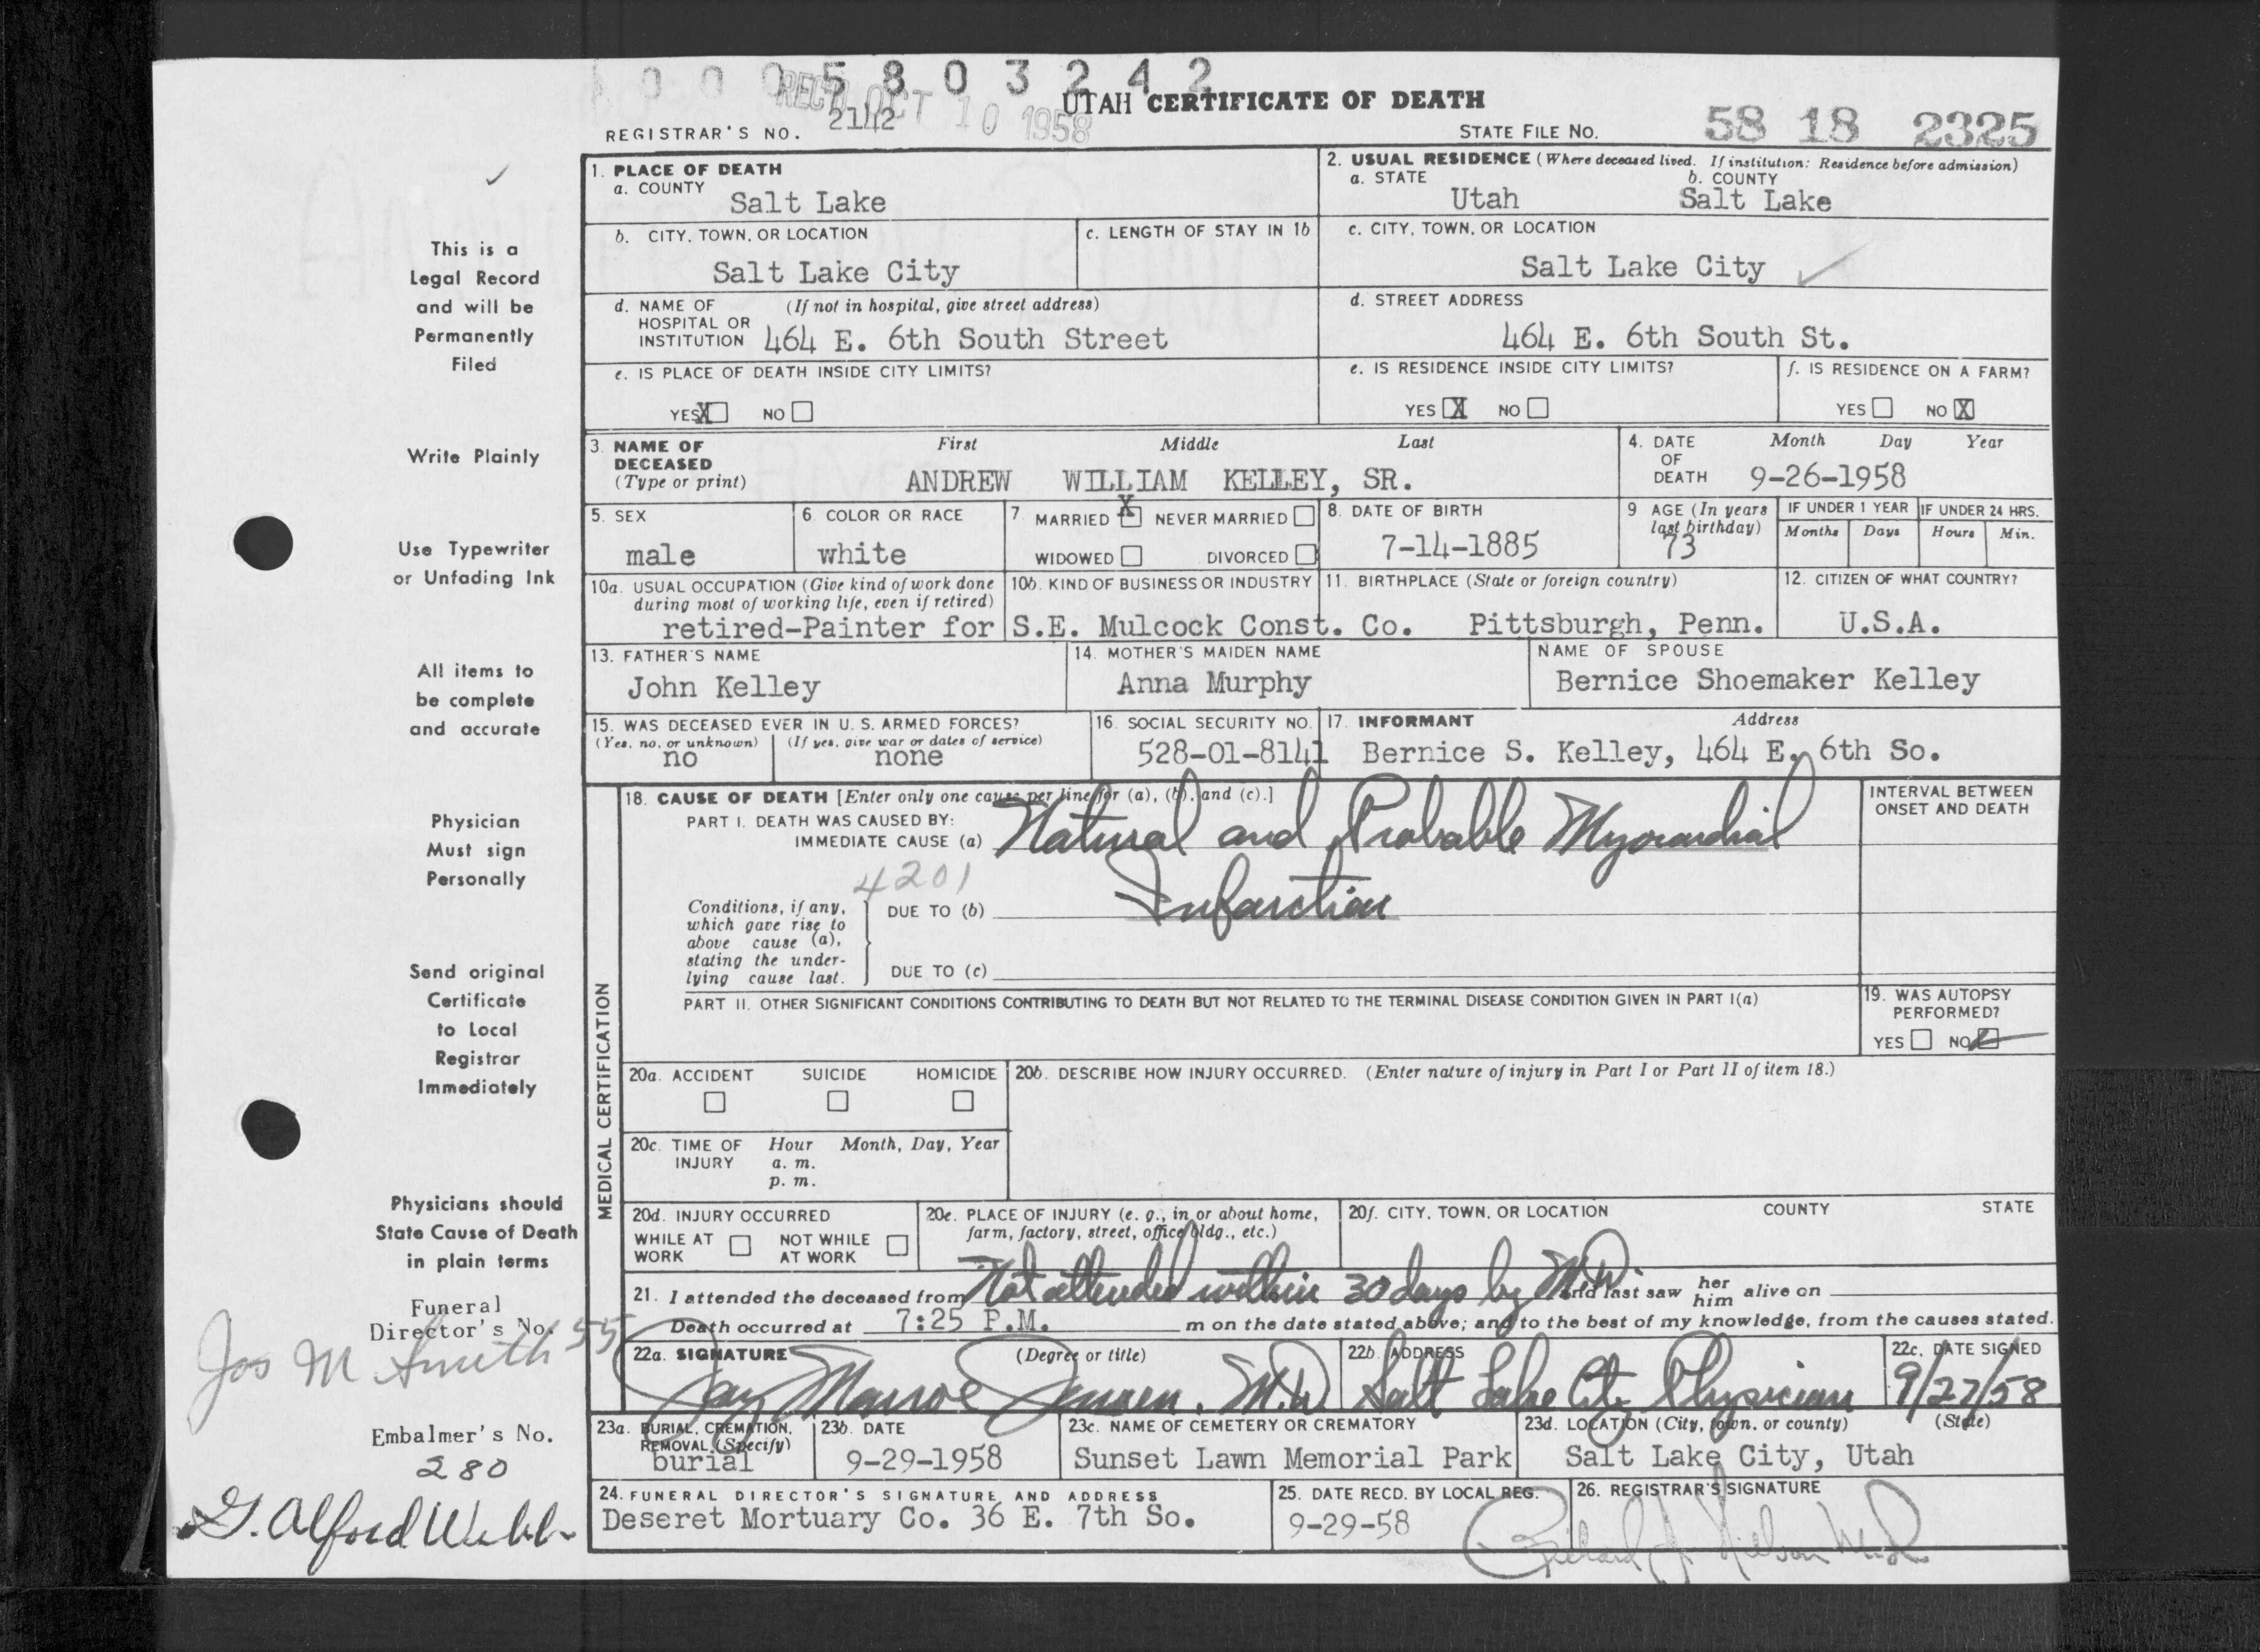 0 0 0 5 8 0 3 2 4 2
REC'D OCT 10 1958
UTAH CERTIFICATE OF DEATH
REGISTRAR'S NO. 2142
STATE FILE NO. 58 18 2325
This is a
Legal Record
and will be
Permanently
Filed
Write Plainly
Use Typewriter
or Unfading Ink
All items to
be complete
and accurate
Physician
Must sign
Personally
Send original
Certificate
to Local
Registrar
Immediately
Physicians should
State Cause of Death
in plain terms
Funeral
Director's No.
Jos M Smith 55
Embalmer's No.
280
G. Alford Webb
1. PLACE OF DEATH
a. COUNTY
Salt Lake
2. USUAL RESIDENCE (Where deceased lived. If institution: Residence before admission)
a. STATE b. COUNTY
Utah Salt Lake
b. CITY, TOWN, OR LOCATION
Salt Lake City
c. LENGTH OF STAY IN 1b
c. CITY, TOWN, OR LOCATION
Salt Lake City
d. NAME OF (If not in hospital, give street address)
HOSPITAL OR
INSTITUTION 464 E. 6th South Street
d. STREET ADDRESS
464 E. 6th South St.
e. IS PLACE OF DEATH INSIDE CITY LIMITS?
YES X NO
e. IS RESIDENCE INSIDE CITY LIMITS?
YES X NO
f. IS RESIDENCE ON A FARM?
YES NO X
3. NAME OF First Middle Last
DECEASED
(Type or print) ANDREW WILLIAM KELLEY, SR.
4. DATE Month Day Year
OF
DEATH 9-26-1958
5. SEX
male
6. COLOR OR RACE
white
7. MARRIED X NEVER MARRIED
WIDOWED DIVORCED
8. DATE OF BIRTH
7-14-1885
9 AGE (In years
last birthday)
73
IF UNDER 1 YEAR IF UNDER 24 HRS.
Months Days Hours Min.
10a. USUAL OCCUPATION (Give kind of work done
during most of working life, even if retired)
retired-Painter for
10b. KIND OF BUSINESS OR INDUSTRY
S.E. Mulcock Const. Co.
11. BIRTHPLACE (State or foreign country)
Pittsburgh, Penn.
12. CITIZEN OF WHAT COUNTRY?
U.S.A.
13. FATHER'S NAME
John Kelley
14. MOTHER'S MAIDEN NAME
Anna Murphy
NAME OF SPOUSE
Bernice Shoemaker Kelley
15. WAS DECEASED EVER IN U. S. ARMED FORCES?
(Yes, no, or unknown) (If yes, give war or dates of service)
no none
16. SOCIAL SECURITY NO.
528-01-8141
17. INFORMANT Address
Bernice S. Kelley, 464 E. 6th So.
MEDICAL CERTIFICATION
18. CAUSE OF DEATH [Enter only one cause per line for (a), (b), and (c).]
PART I. DEATH WAS CAUSED BY:
IMMEDIATE CAUSE (a) Natural and Probable Myocardial
4201
Infarction
Conditions, if any,
which gave rise to
above cause (a),
stating the under-
lying cause last.
DUE TO (b)
DUE TO (c)
INTERVAL BETWEEN
ONSET AND DEATH
PART II. OTHER SIGNIFICANT CONDITIONS CONTRIBUTING TO DEATH BUT NOT RELATED TO THE TERMINAL DISEASE CONDITION GIVEN IN PART I(a)
19. WAS AUTOPSY
PERFORMED?
YES NO
20a. ACCIDENT SUICIDE HOMICIDE
20b. DESCRIBE HOW INJURY OCCURRED. (Enter nature of injury in Part I or Part II of item 18.)
20c. TIME OF Hour Month, Day, Year
INJURY a. m.
p. m.
20d. INJURY OCCURRED
WHILE AT NOT WHILE
WORK AT WORK
20e. PLACE OF INJURY (e. g., in or about home,
farm, factory, street, office bldg., etc.)
20f. CITY, TOWN, OR LOCATION COUNTY STATE
21. I attended the deceased from Not attended within 30 days by M.D. and last saw her him alive on
Death occurred at 7:25 P.M. m on the date stated above; and to the best of my knowledge, from the causes stated.
22a. SIGNATURE (Degree or title)
Jay Monroe Jensen, M.D.
22b. ADDRESS
Salt Lake City Physician
22c. DATE SIGNED
9/27/58
23a. BURIAL, CREMATION,
REMOVAL (Specify)
burial
23b. DATE
9-29-1958
23c. NAME OF CEMETERY OR CREMATORY
Sunset Lawn Memorial Park
23d. LOCATION (City, town, or county) (State)
Salt Lake City, Utah
24. FUNERAL DIRECTOR'S SIGNATURE AND ADDRESS
Deseret Mortuary Co. 36 E. 7th So.
25. DATE RECD. BY LOCAL REG.
9-29-58
26. REGISTRAR'S SIGNATURE
Richard Nielson